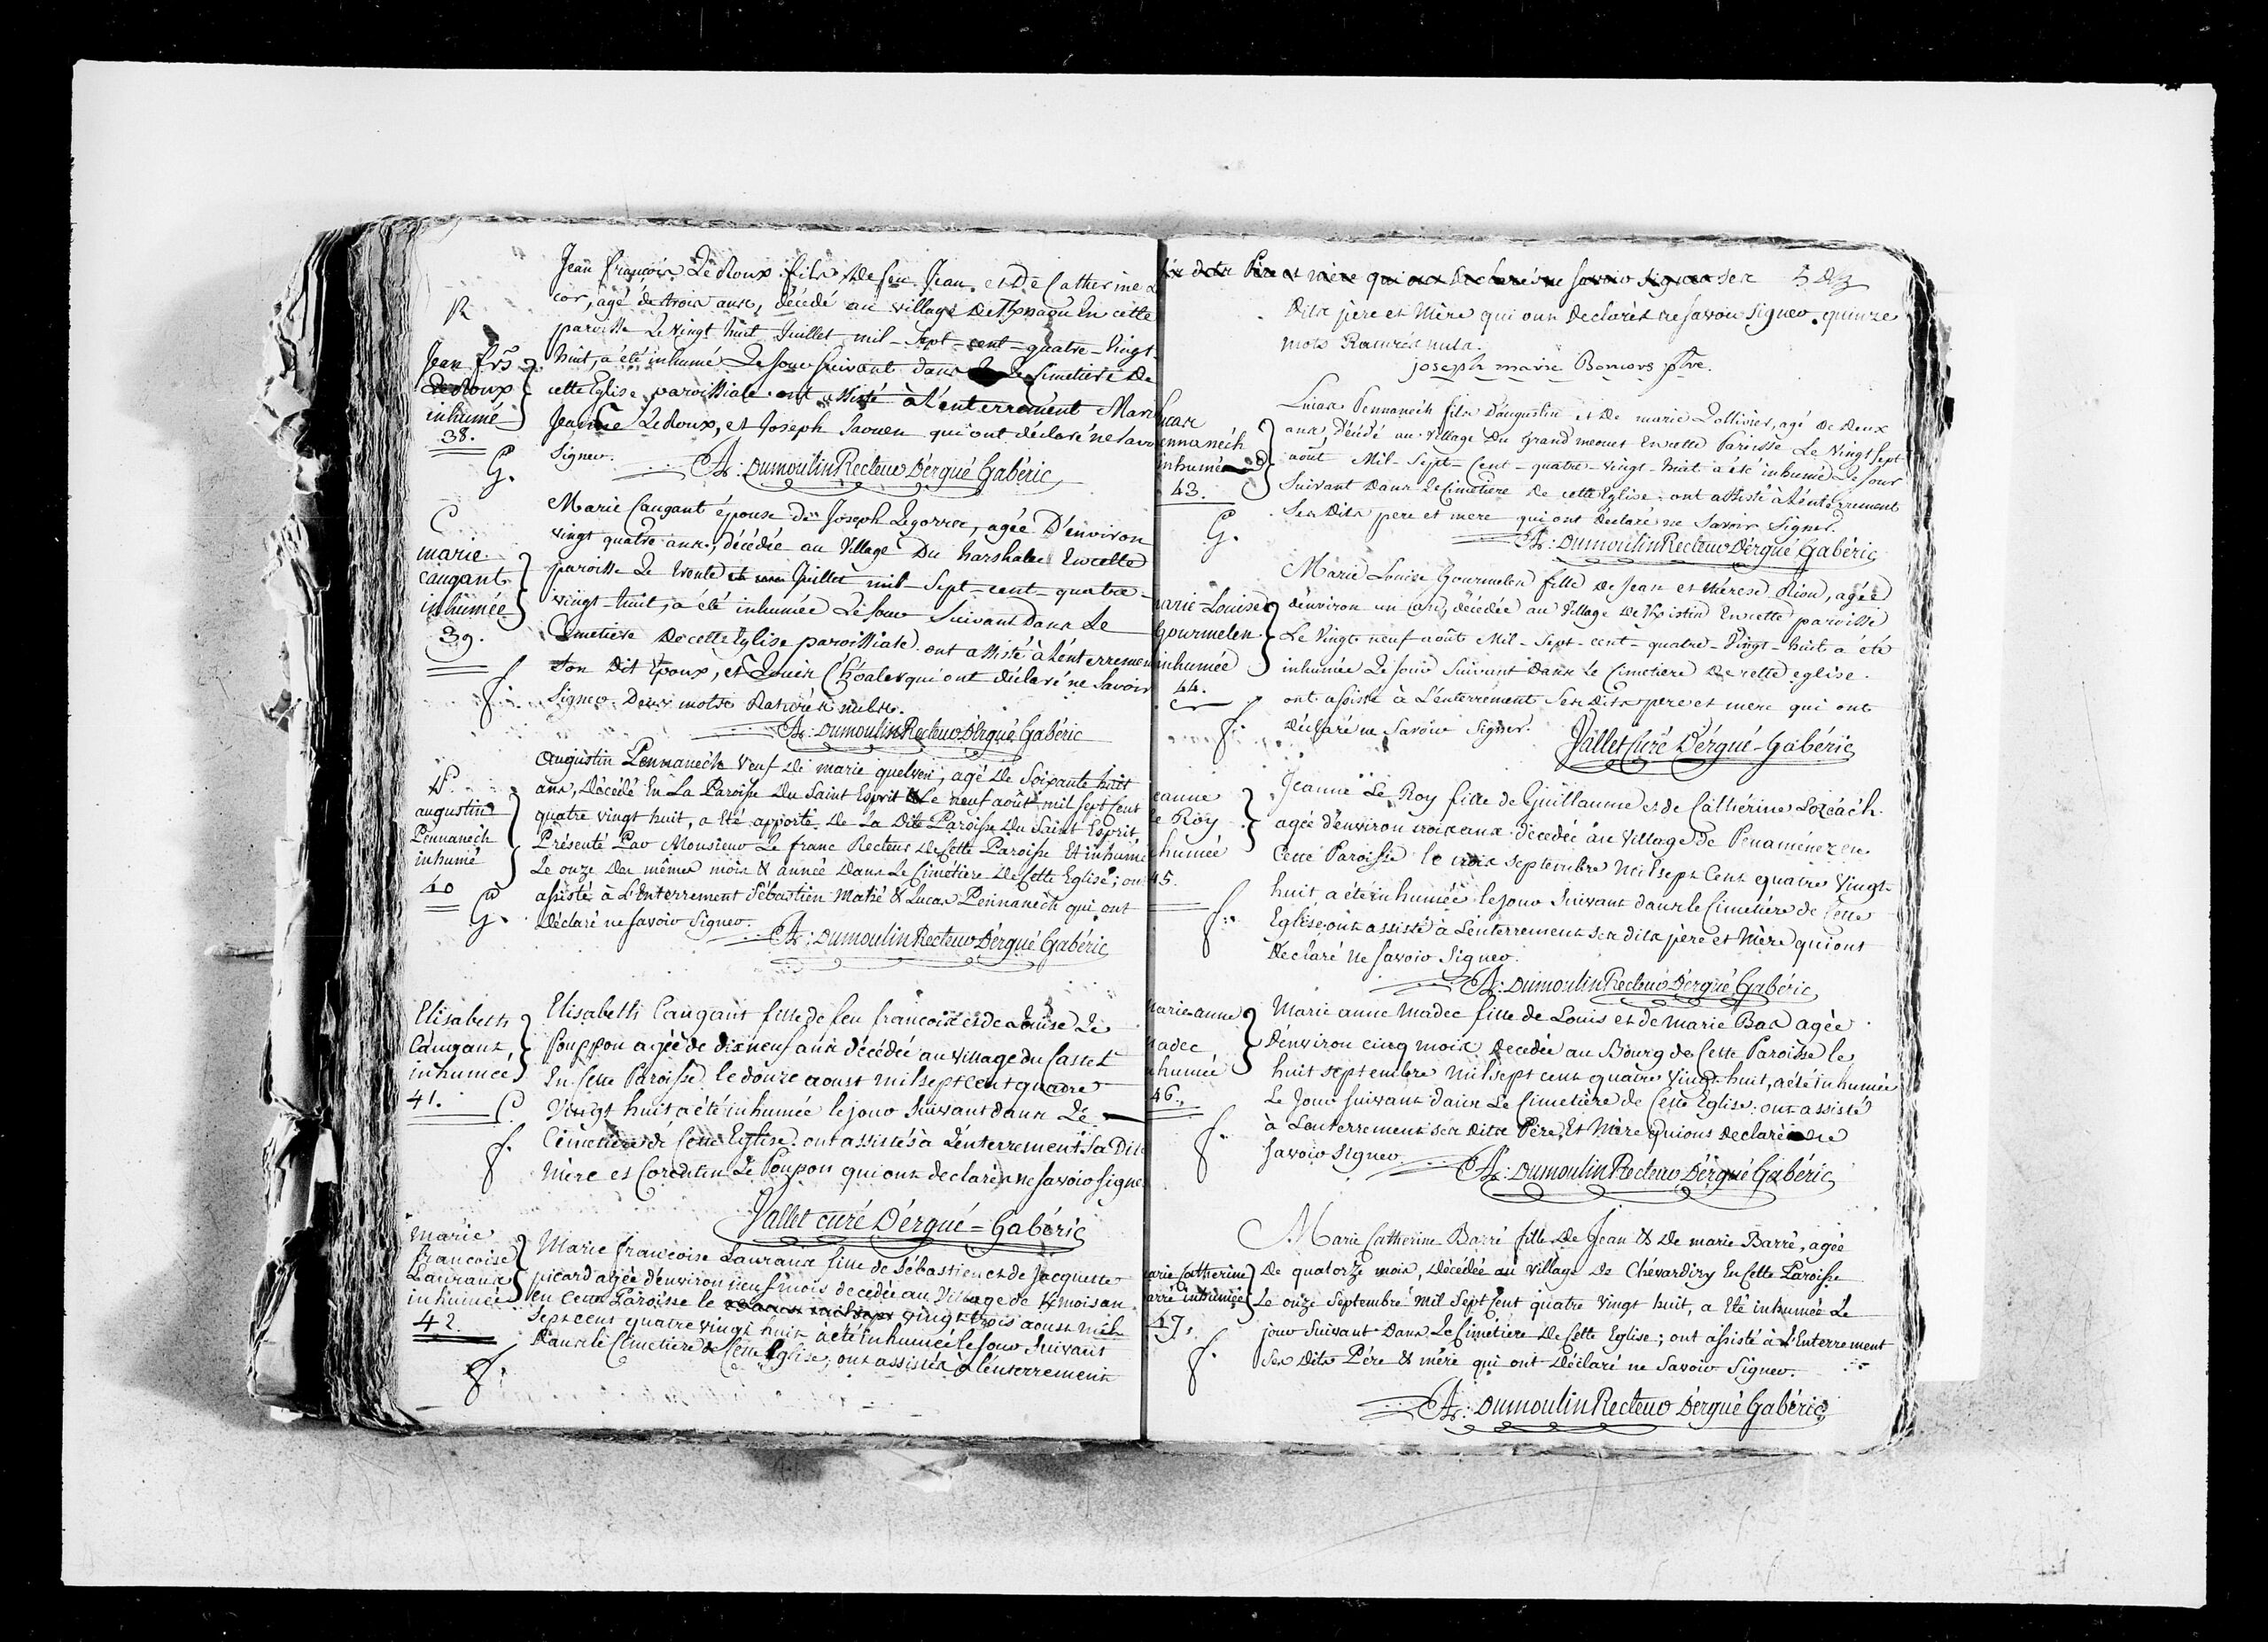 Jean françois Le Roux fils de feu Jean et de Catherine
R
cor, agé de trois ans, décédé au village de en cette
paroisse Le vingt huit Juillet mil-Sept-cent-quatre-vingt-
Jean frs
Le Roux
inhumé
38.
G.
huit, a été inhumé Le Jour Suivant dans Le Cimetière De
cette Eglise paroissiale. ont assisté à L'enterrement Marie
Jeanne Le Roux, et Joseph Saouen qui ont déclaré ne Savoir
Signer.
A: Dumoulin Recteur D'ergué Gabéric
C
marie
caugant
inhumée
39.
f.
Marie Caugant épouse de Joseph Legorrec, agée D'environ
vingt quatre ans, décédée au Village Du en cette
paroisse Le trente Juillet mil-Sept-cent-quatre-
vingt-huit, a été inhumée Le Jour Suivant Dans Le
Cimetiere De cette Eglise paroissiale. ont assisté à L'enterrement
Son Dit Epoux, et Louis qui ont déclaré ne Savoir
Signer. Deux mots Raturés nuls.
A: Dumoulin Recteur D'ergué Gabéric
P.
augustin
Pennanech
inhumé
40
G.
Augustin Pennanech Veuf De marie quelven, agé De Soixante huit
ans, Décédé En La Paroisse Du Saint Esprit Le neuf août mil sept cent
quatre vingt huit, a Eté apporté De La Dite Paroisse Du Saint Esprit,
Présenté Par Monsieur Le franc Recteur De cette Paroisse Et inhumé
Le onze Des mêmes mois & année Dans Le Cimetière De cette Eglise; ont
assisté à L'Enterrement Sébastien & Lucas Pennanech qui ont
Déclaré ne Savoir Signer.
A: Dumoulin Recteur D'ergué Gabéric
Elisabeth
Caugant,
inhumée
41.
C.
f.
Elisabeth Caugant fille de feu francois et de Louise Le
Pouppon agée de dix neuf ans décédée au village du Castel
En Cette Paroisse le douze aoust mil sept cent quatre
Vingt huit a été inhumée le jour Suivant dans Le
Cimetière de Cette Eglise. ont assistés à L'enterrement Sa Dite
Mère et Corentin Le Poupon qui ont declarés ne savoir signer
Vallet curé D'ergué-Gabéric
Marie
francoise
Laurans
inhumée
42.
f.
Marie francoise Laurans fille de Sébastien et de Jacquette
picard agée d'environ neuf mois decedée au Village de
en Cette Paroisse le vingt trois aoust mil
Sept cent quatre vingt huit a été inhumée le Jour Suivant
Dans le Cimetiere de Cette Eglise; ont assistés à L'enterrement
Père et mère qui ont declaré ne savoir signer ses
Dits père et Mère qui ont Declarés ne savoir signer. quinze
mots Raturés nuls.
joseph marie Bonnors ptre.
Lucas
Pennanéch
inhumé
43.
G.
Lucas Pennanéch fils D'augustin et De marie Lollivier, agé De Deux
ans, Décédé au Village Du grand mennet En cette Paroisse Le Vingt Sept
août Mil-Sept-Cent-quatre-vingt-huit a été inhumé Le Jour
Suivant Dans Le Cimetiere De cette Eglise. ont assisté à L'enterrement
Ses Dits pere et mere qui ont declaré ne Savoir Signer.
A: Dumoulin Recteur D'ergué Gabéric
marie-Louise
Gourmelen
inhumée
44.
f.
Marie Louise Gourmelen fille De Jean et Thérese Rion, agée
d'environ un an, décédée au Village De En cette paroisse
Le Vingt neuf août Mil-Sept-cent-quatre-Vingt-huit a été
inhumée Le Jour Suivant Dans Le Cimetiere De cette eglise.
ont assisté à L'enterrement Ses Dits pere et mere qui ont
Déclaré ne Savoir Signer.
Vallet Curé D'érgué-Gabéric
Jeanne
le Roy
inhumée
45.
f.
Jeanne Le Roy fille de Guillaume et de Catherine Lozéach.
agée d'environ trois ans decedée au village de Penaménez en
Cette Paroisse le trois septembre Mil sept Cent quatre Vingt-
huit, a été inhumée le jour Suivant dans le Cimetiere de Cette
Eglise. ont assisté à L'enterrement ses dits père et Mère qui ont
Declaré Ne Savoir Signer.
A: Dumoulin Recteur D'ergué Gabéric
Marie-anne
Madec
inhumée
46.
f.
Marie anne Madec fille de Louis et de Marie Bas agée
D'environ cinq mois Decedée au Bourg de Cette Paroisse le
huit septembre Mil sept cent quatre Vingt huit, a été inhumée
Le Jour suivant dans Le Cimetière de Cette Eglise: ont assisté
à L'enterrement ses Dits Père, Et Mère qui ont Declaré ne
savoir signer.
A: Dumoulin Recteur D'érgué Gabéric
Marie Catherine
Barré inhumée
47.
f.
Marie Catherine Barré fille De Jean & De marie Barré, agée
De quatorze mois, Décédée au Village De Chévardiry En Cette Paroisse
Le onze Septembre Mil Sept Cent quatre Vingt huit, a Eté inhumée Le
jour Suivant Dans Le Cimetière De Cette Eglise; ont assisté à L'Enterrement
Ses Dits Pére & mére qui ont Déclaré ne Savoir Signer.
A: Dumoulin Recteur D'érgué Gabéric